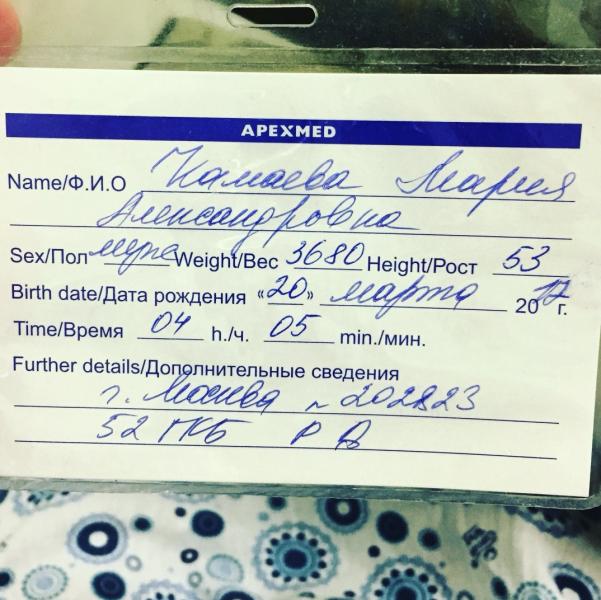 APEXMED
Name/Ф.И.О Камаева Мария
Александровна
Sex/Пол муж Weight/Вес 3680 Height/Рост 53
Birth date/Дата рождения «20» марта 2017 г.
Time/Время 04 h./ч. 05 min./мин.
Further details/Дополнительные сведения
г. Москва
52 ГКБ Р